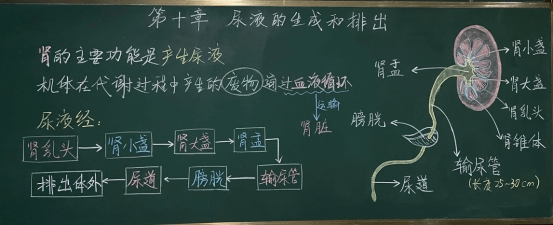 第十章 尿液的生成和排出
肾的主要功能是产生尿液
机体在代谢过程中产生的废物通过血液循环
运输
肾脏
尿液经：
肾乳头 肾小盏 肾大盏 肾盂
排出体外 尿道 膀胱 输尿管
肾盂
膀胱
尿道
肾小盏
肾大盏
肾乳头
肾锥体
输尿管
(长度25~30cm)